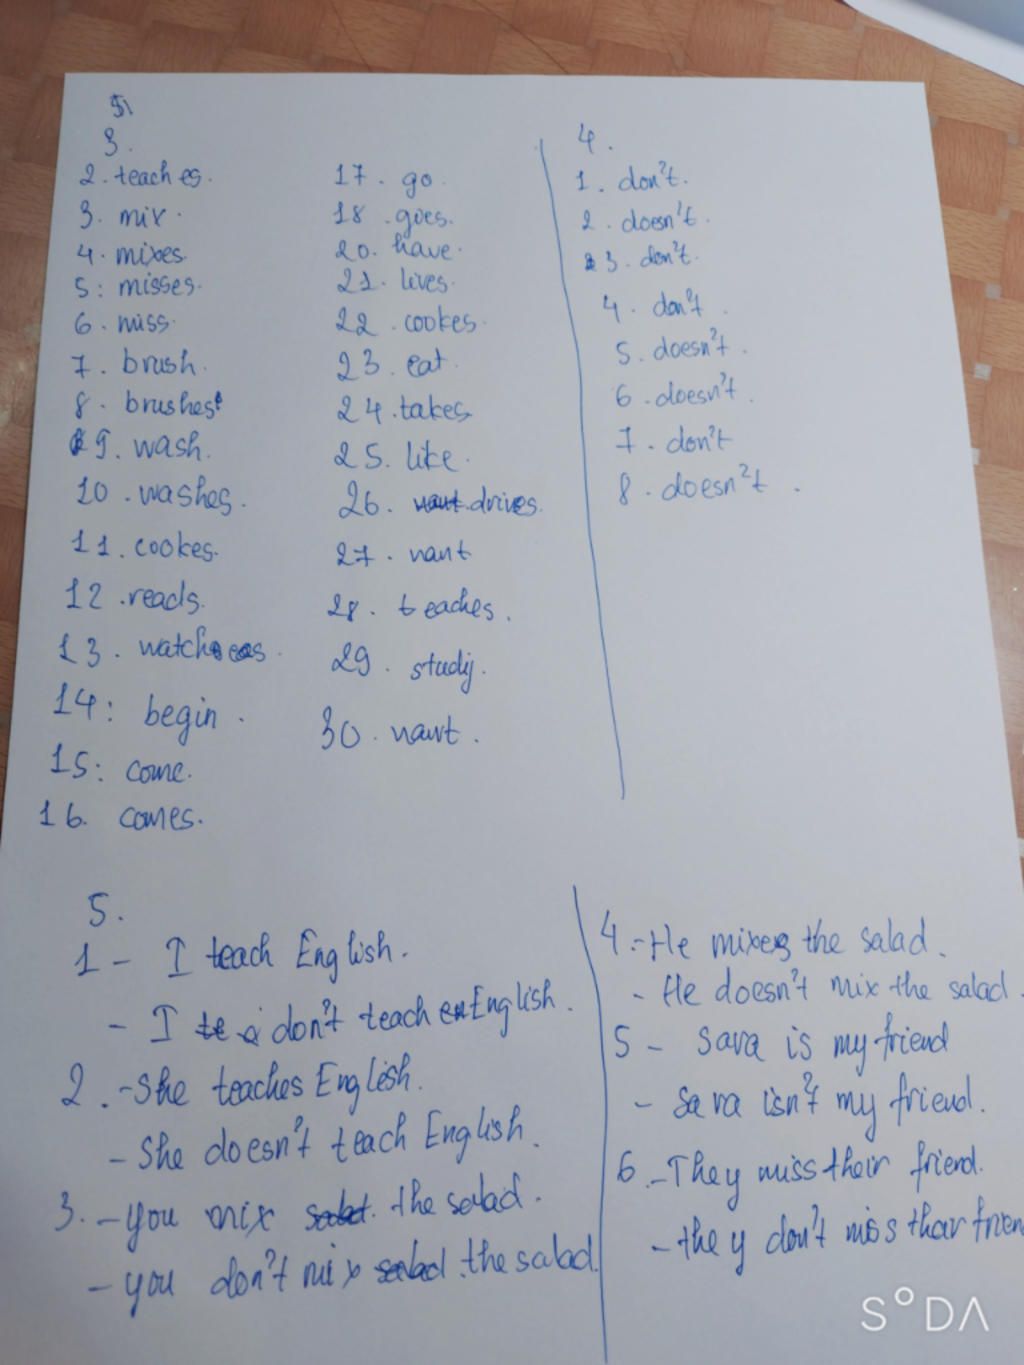 3.
2. teaches.
3. mix.
4. mixes.
5: misses.
6. miss.
7. brush.
8. brushes
9. wash.
10. washes.
11. cookes.
12. reads.
13. watches.
14: begin.
15: come.
16. comes.
17. go.
18. goes.
20. have.
21. lives.
22. cookes.
23. eat.
24. takes
25. like.
26. drives.
27. want
28. teaches.
29. studij.
30. want.
4.
1. don't.
2. doesn't.
3. don't.
4. don't.
5. doesn't.
6. doesn't.
7. don't
8. doesn't.
5.
1 - I teach English.
- I don't teach English.
2. - She teaches English.
- She doesn't teach English.
3. - you mix the salad.
- you don't mix the salad.
4. - He mixes the salad.
- He doesn't mix the salad.
5 - Sara is my friend
- Sara isn't my friend.
6. - They miss their friend.
- they don't miss thar frien
S°DΛ